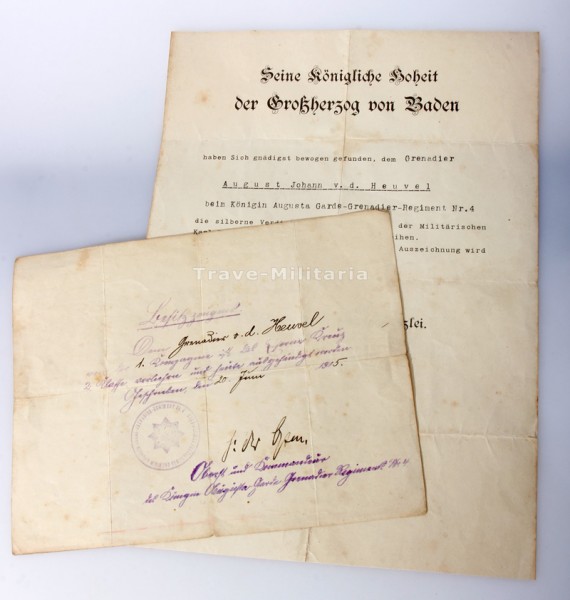 Seine Königliche Hoheit
der Großherzog von Baden
haben Sich gnädigst bewogen gefunden, dem Grenadier
August Johann v.d. Heuvel
beim Königin Augusta Garde-Grenadier-Regiment Nr.4
die silberne der Militärischen
ihen.
Auszeichnung wird
zlei.
Trave-Militaria
Besitzzeugnis
Dem Grenadier v. d. Heuvel
der 1. Kompagnie ist das Eiserne Kreuz
2. Klasse verliehen und heute ausgehändigt worden
Geschrieben, den 20. Juni 1915
Oberst und Kommandeur
des Königin Augusta Garde Grenadier Regiments No 4.